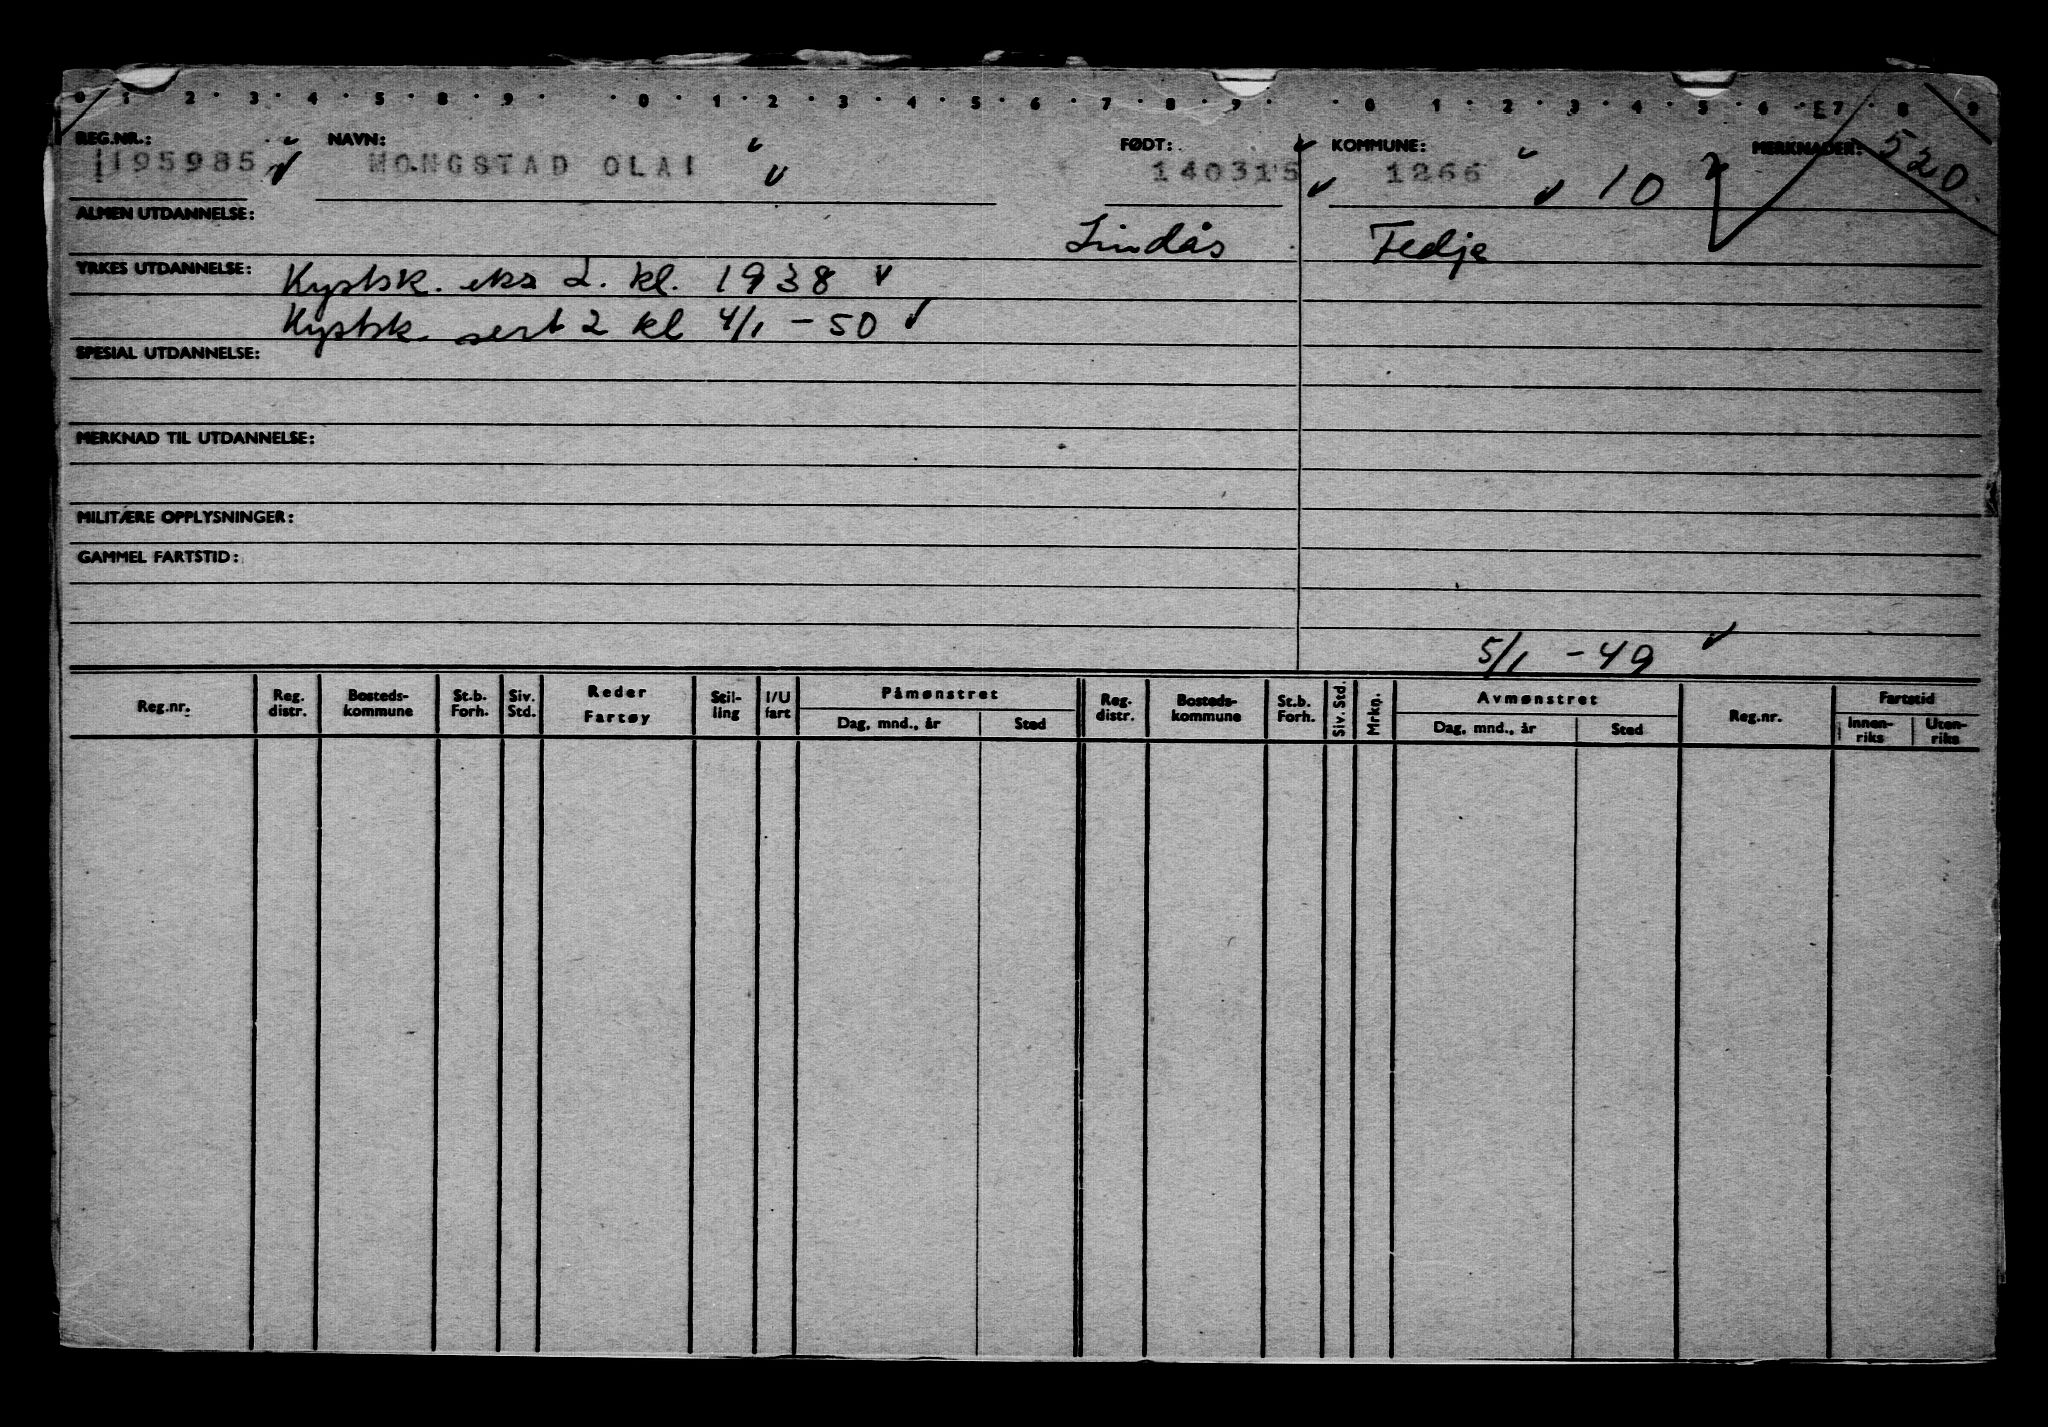 0 1 · 2 · 3 · 4 · 5 · 8 · 9 · · 0 · 1 · 2 · 3 · 4 · 5 · 6 · 7 · 8 · 9 · · 0 · 1 · 2 · 3 · 4 · 5 · 6 · E7 · 8 9
REG.NR.: NAVN: FØDT: KOMMUNE: MERKNADER: 520
195985 MONGSTAD OLAI 140315 1266 10
ALMEN UTDANNELSE: Lindås Fedje
YRKES UTDANNELSE: Kystsk. eks 2. kl. 1938
Kystsk. sert 2 kl 4/1 - 50
SPESIAL UTDANNELSE:
MERKNAD TIL UTDANNELSE:
MILITÆRE OPPLYSNINGER:
GAMMEL FARTSTID:
5/1 - 49
Reg.nr. Reg. distr. Bosteds- kommune St.b. Forh. Siv. Std. Reder Fartøy Stil- ling I/U fart Påmønstret Dag, mnd., år Sted Reg. distr. Bosteds- kommune St.b. Forh. Siv. Std. Mrkn. Avmønstret Dag, mnd., år Sted Reg.nr. Fartstid Innen- riks Uten- riks